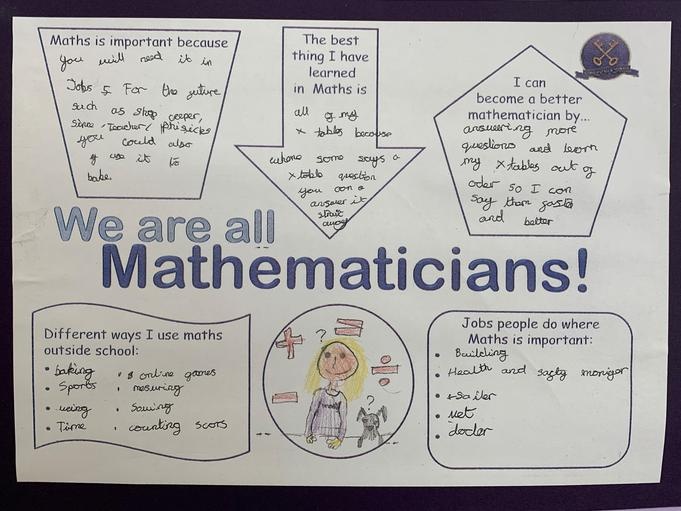 Maths is important because
you will need it in
Jobs & For the future
such as shop ceeper,
Teacher/
you could also
use it to
bake.
The best
thing I have
learned
in Maths is
all of my
x tables because
whene some says a
x table question
you can
answer it
strait
away
I can
become a better
mathematician by...
answering more
questions and learn
my x tables out of
oder so I can
say them faster
and better
We are all
Mathematicians!
Different ways I use maths
outside school:
• baking
• Sports
• Time
• online games
• mesuring
• counting scors
+
=
÷
-
?
?
Jobs people do where
Maths is important:
• Building
• Health and safty maniger
• vet
• docter